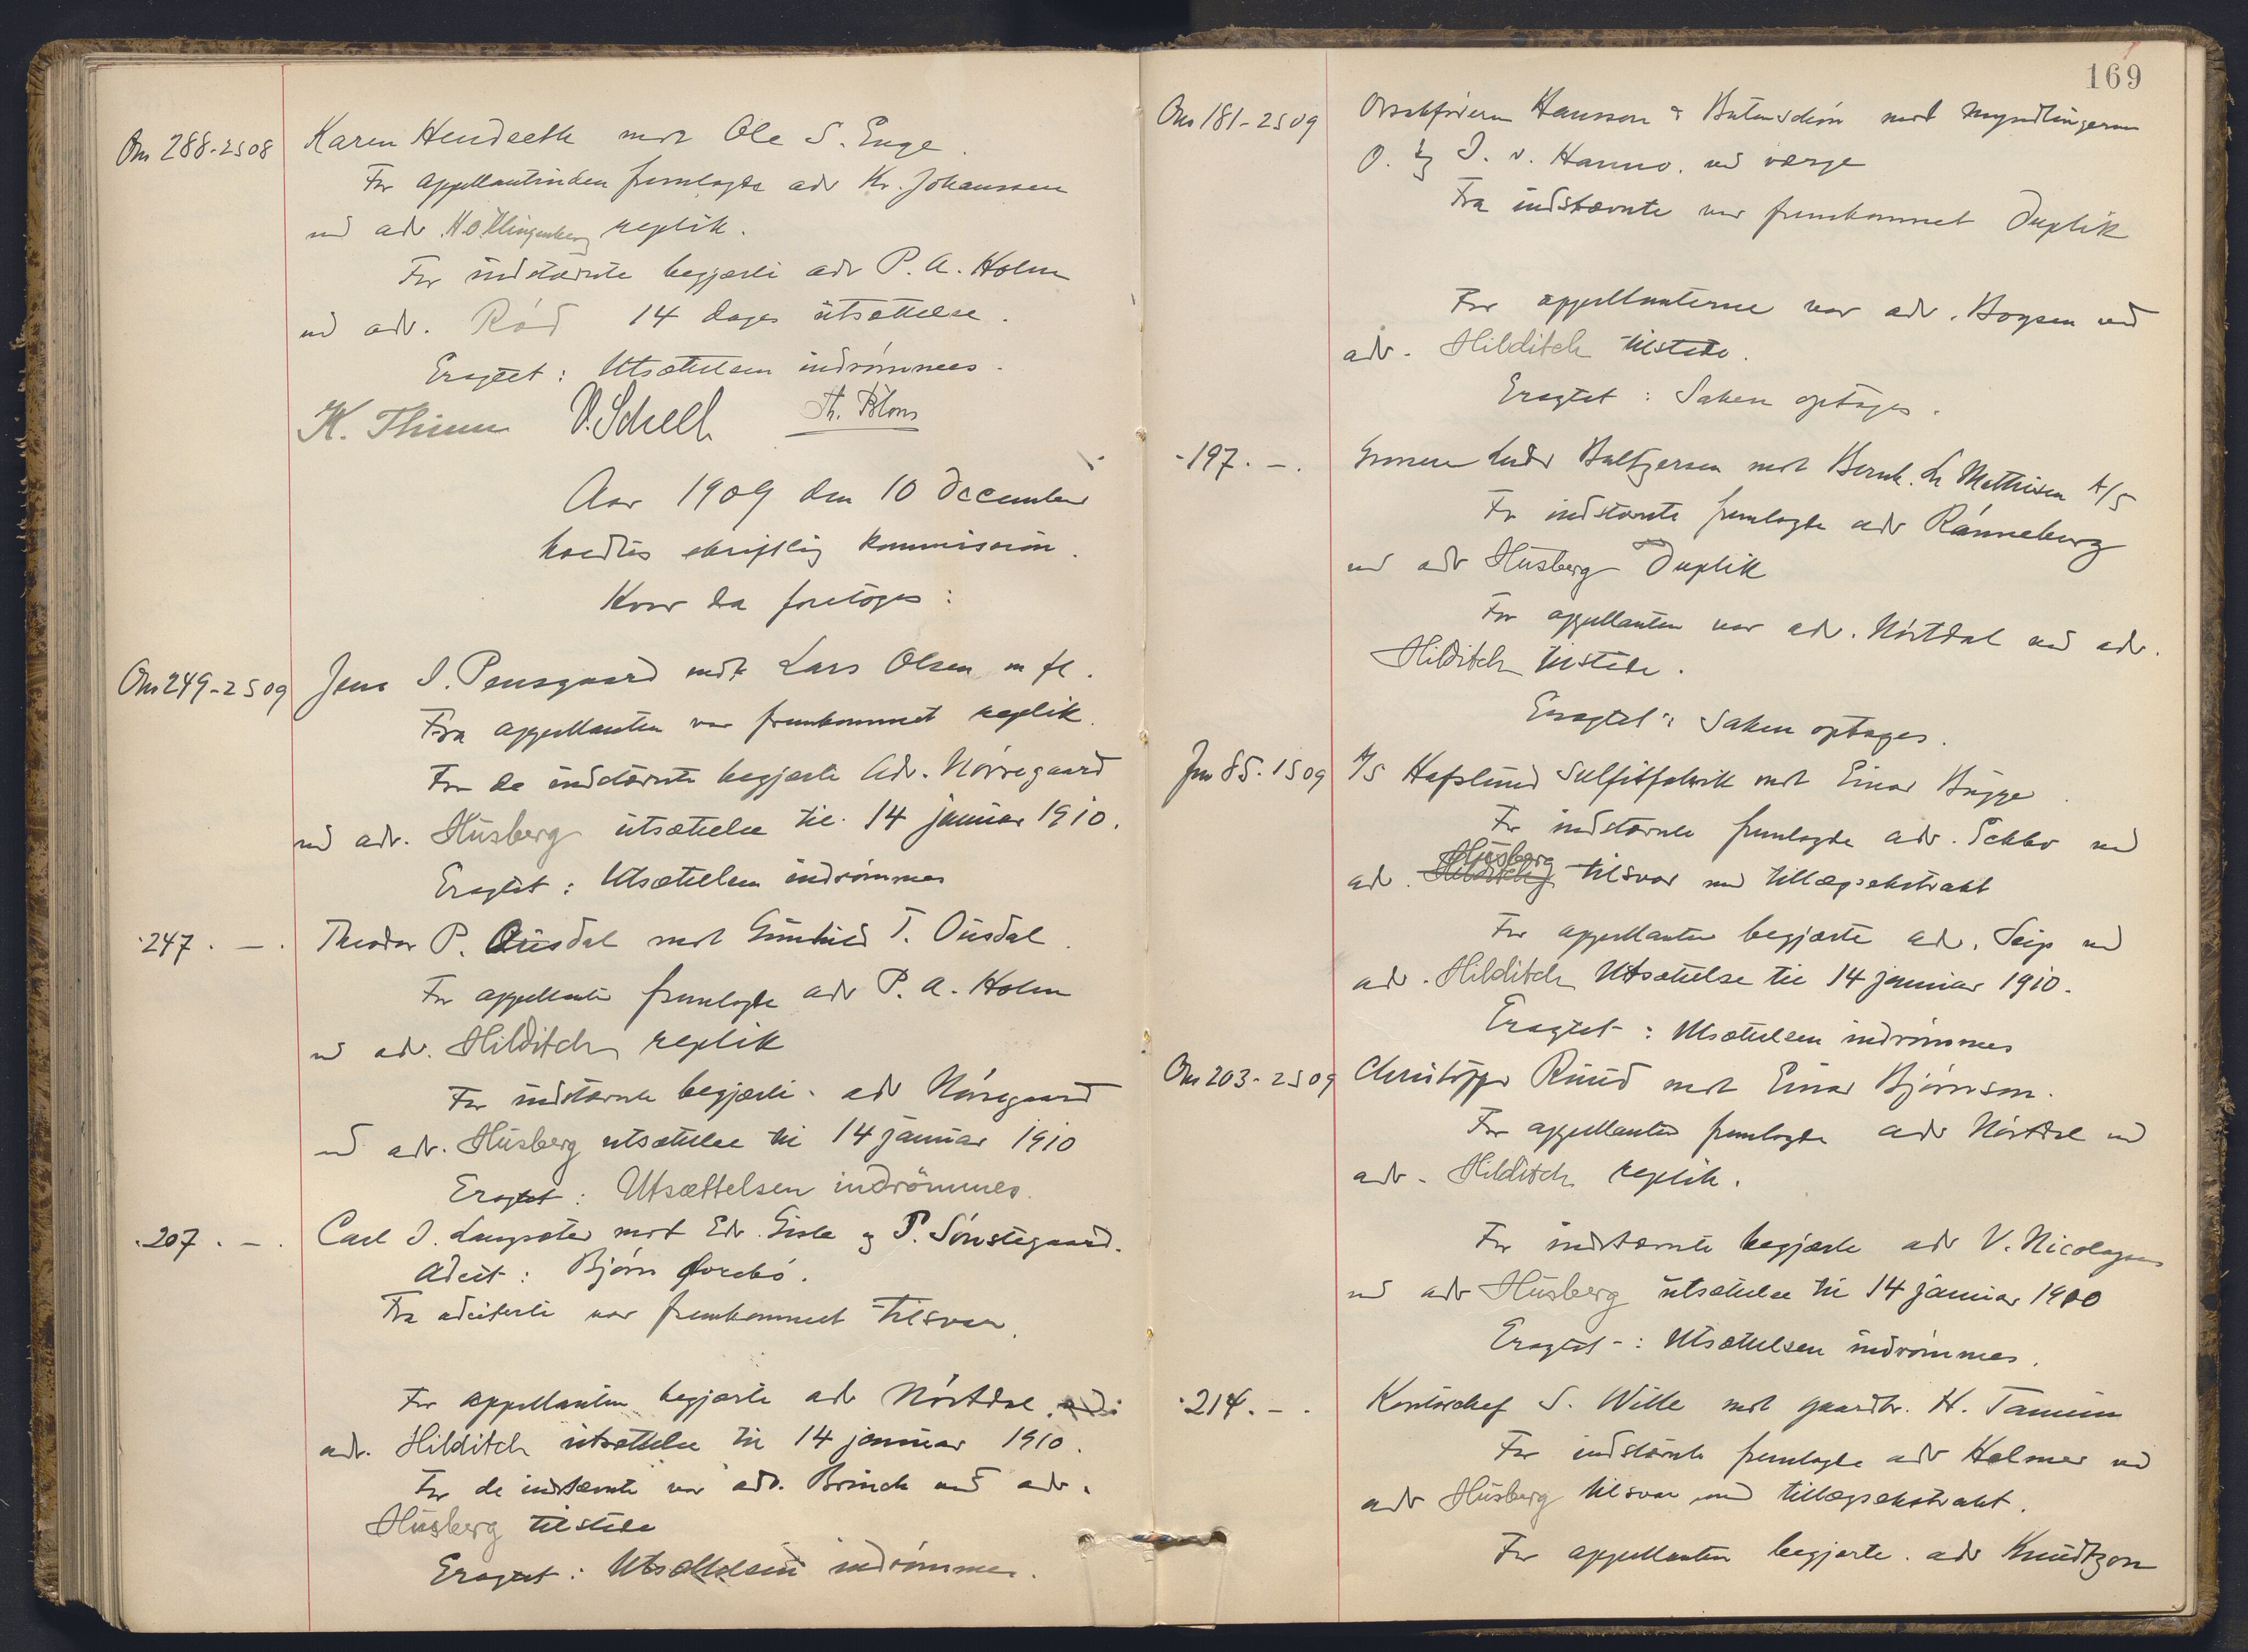 Ons 288-2S08
Karen Hendseth mot Ole S. Enge.
For appellantinden fremlagde adv Kr. Johanssen
ved adv. H.O. Klingenberg replik.
For indstævnte begjærte adv P. A. Holm
ved adv. Röd 14 dages utsættelse.
Eragtet: Utsættelsen indrømmes.
K. Thinn V. Schell Th. Blom
Aar 1909 den 10 december
holdtes skriftlig kommission.
Hvor da foretoges:
Ons 249-2S09
Jens I. Pensgaard mot Lars Olsen m fl.
Fra appellanten var fremkommet replik.
For de indstævnte begjærte Adv. Nørregaard
ved adv. Husberg utsættelse til 14 januar 1910.
Eragtet: Utsættelsen indrømmes
·247. — .
Theodor P. Ousdal mot Gunhild T. Ousdal.
For appellanten fremlagde adv P. A. Holm
ved adv. Hilditch replik
For indstævnte begjærte adv Nørregaard
ved adv. Husberg utsættelse til 14 januar 1910
Eragtet: Utsættelsen indrömmes.
·207. — .
Carl I. Langsæter mot Edv. Gisle og P. Sønstegaard.
Adcit: Bjørn
Fra adciterte var fremkommet Tilsvar.
For appellanten begjærte adv Nørtdal
adv. Hilditch utsættelse til 14 januar 1910.
For de indstævnte var adv. Brinch ved adv.
Husberg tilstede
Eragtet: Utsættelsen indrømmes.
169
Ons 181-2S09
Ovsakførerne Hansson & Butenschøn mot myndlingerne
O. og I. v. Hanno. ved værge
Fra indstævnte var fremkommet Duplik
For appellanterne var adv. Boysen ved
adv. Hilditch tilstede.
Eragtet: Saken optages.
·197. — .
Baltzersen mot Bernh. L. Mathisen A/S
For indstævnte fremlagde adv Rønneberg
ved adv Husberg Duplik
For appellanten var adv. Nørtdal ved adv.
Hilditch tilstede.
Eragtet: Saken optages.
Jur 85. 1S09
A/S Hafslund Sulfitfabrik mot Einar Bugge.
For indstævnte fremlagde adv. Schbo ved
Husberg
adv. Hilditch tilsvar med tillægsekstrakt
For appellanten begjærte adv. Seip ved
adv. Hilditch Utsættelse til 14 januar 1910.
Eragtet: Utsættelsen indrømmes
Ons 203-2S09
Christoffer Ruud mot Einar Bjørnson.
For appellanten fremlagde adv Nørtdal ved
adv. Hilditch replik.
For indstævnte begjærte adv V. Nicolaysen
ved adv Husberg utsættelse til 14 januar 1910
Eragtet: Utsættelsen indrømmes.
·214. — .
Kontorchef S. Wille mot gaardbr. H. Tanum
For indstævnte fremlagde adv Holmer ved
adv Husberg tilsvar med tillægsekstrakt.
For appellanten begjærte adv Knudtzon